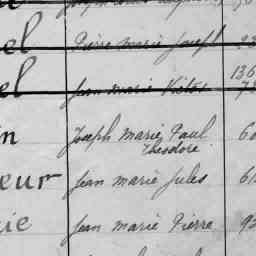 el Pierre Marie Joseph
136
el Jean Marie Victor
in Joseph Marie Paul 60
Théodore
eur Jean Marie Jules 61
ie Jean Marie Pierre 92